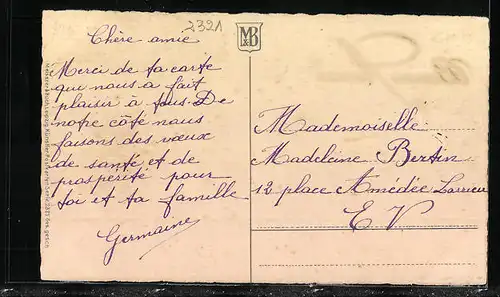 2321
MB
&D
Chère amie
Merci de ta carte
qui nous a fait
plaisir à tous. De
notre côté nous
faisons des vœux
de santé et de
prospérité pour
toi et ta famille
Germaine
Mademoiselle
Madeleine Bertin
12 place Amédée Larrieu
E V